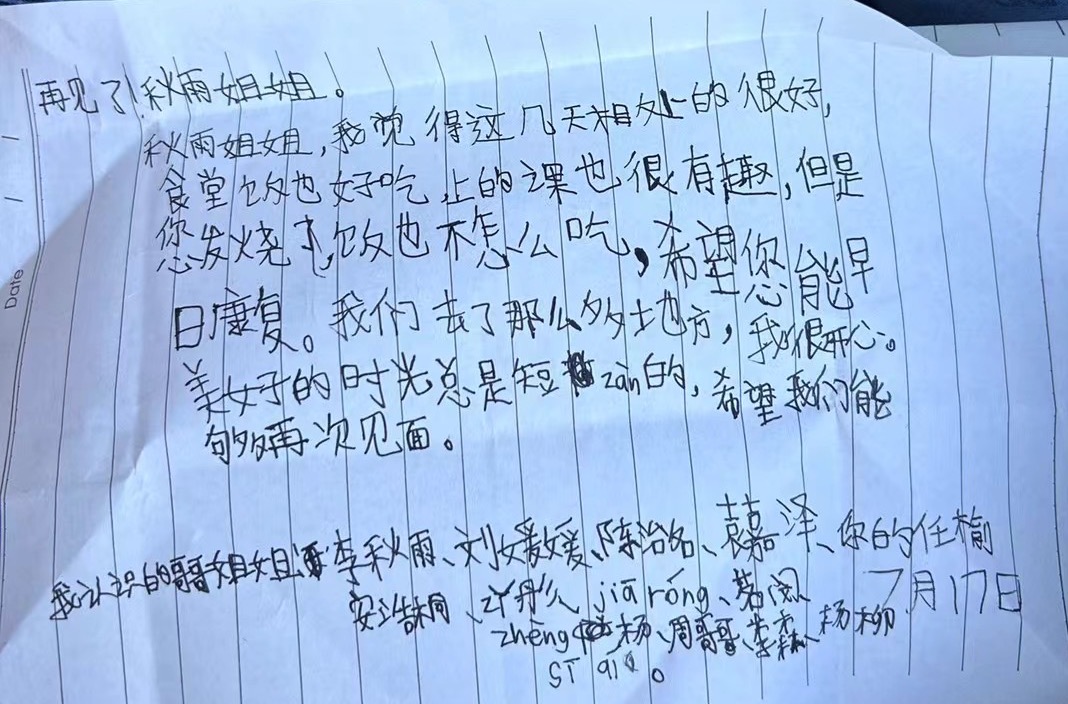 再见了!秋雨姐姐。
秋雨姐姐,我觉得这几天相处上的很好,
食堂饭也好吃,上的课也很有趣,但是
您发烧了,饭也不怎么吃,希望您能早
日康复。我们去了那么多地方,我很开心。
美好的时光总是短zàn的,希望我们能
够再次见面。
我认识的哥哥姐姐 李秋雨、刘媛媛、陈治名、袁嘉泽、你的任榆
安浩桐、丹 jiā róng、
7月17日
zhèng 杨、周哥哥、杨柳
Date